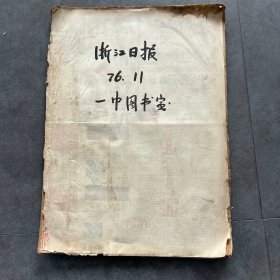 浙江日报
76.11
一中图书室